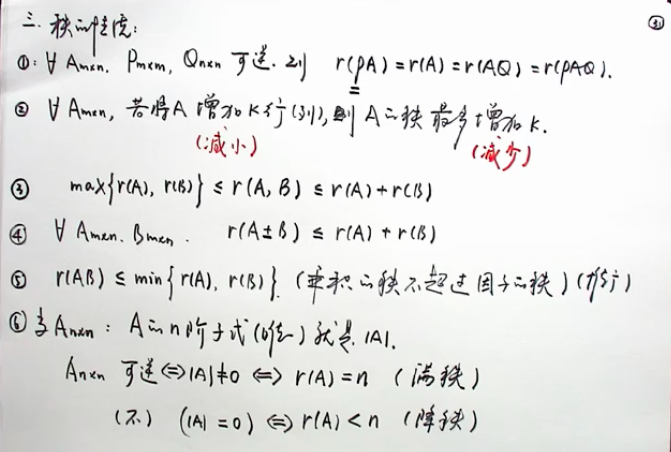 三. 秩的性质:
①: ∀ Am×n, Pm×m, Qn×n 可逆. 则 r(PA) = r(A) = r(AQ) = r(PAQ).
② ∀ Am×n, 若将A 增加K行(列), 则 A的秩 最多增加 K.
(减小) (减少)
③ max{r(A), r(B)} ≤ r(A, B) ≤ r(A) + r(B)
④ ∀ Am×n. Bm×n. r(A±B) ≤ r(A) + r(B)
⑤ r(AB) ≤ min{r(A), r(B)}. (乘积的秩不超过因子的秩) (推广)
⑥ 当 An×n : A的n阶子式(唯一) 就是 |A|.
An×n 可逆 ⇔ |A|≠0 ⇔ r(A) = n (满秩)
(不) (|A| = 0) ⇔ r(A) < n (降秩)